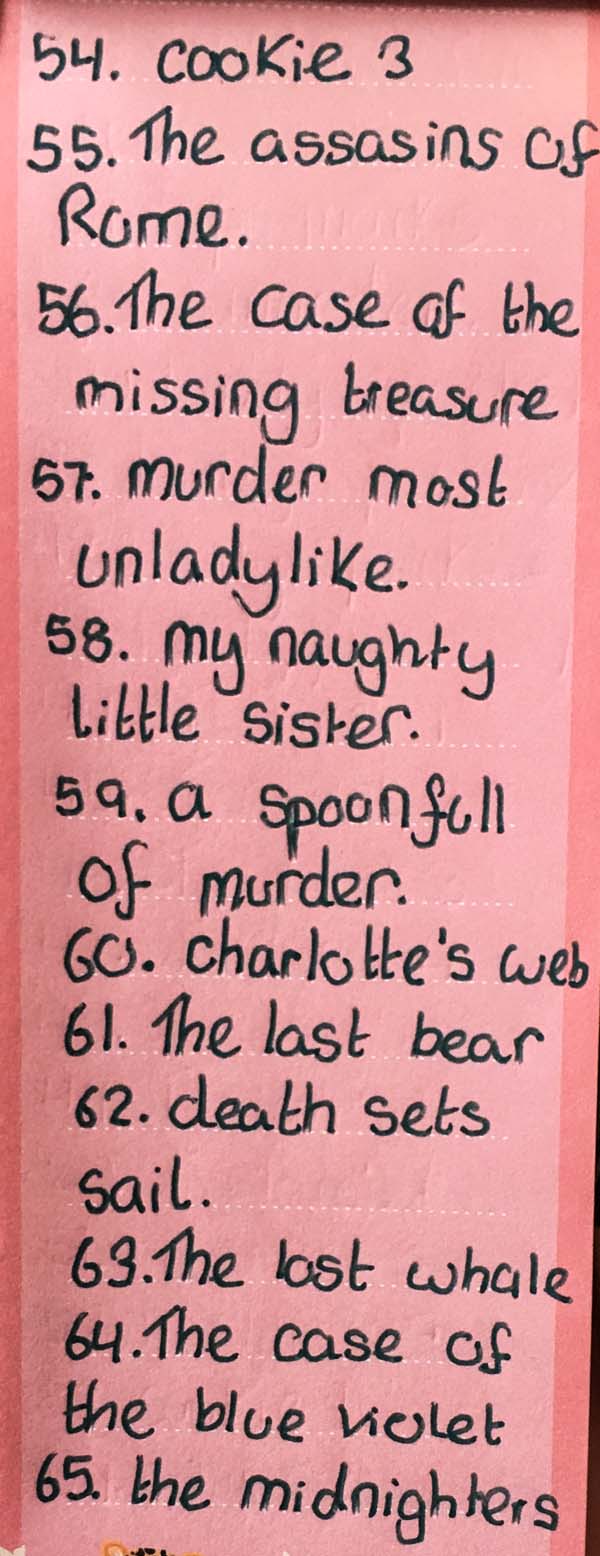 54. cookie 3
55. The assasins of
Rome.
56. The case of the
missing treasure
57. murder most
unladylike.
58. my naughty
little sister.
59. a spoonfull
of murder.
60. charlotte's web
61. The last bear
62. death sets
sail.
63. The lost whale
64. The case of
the blue violet
65. the midnighters